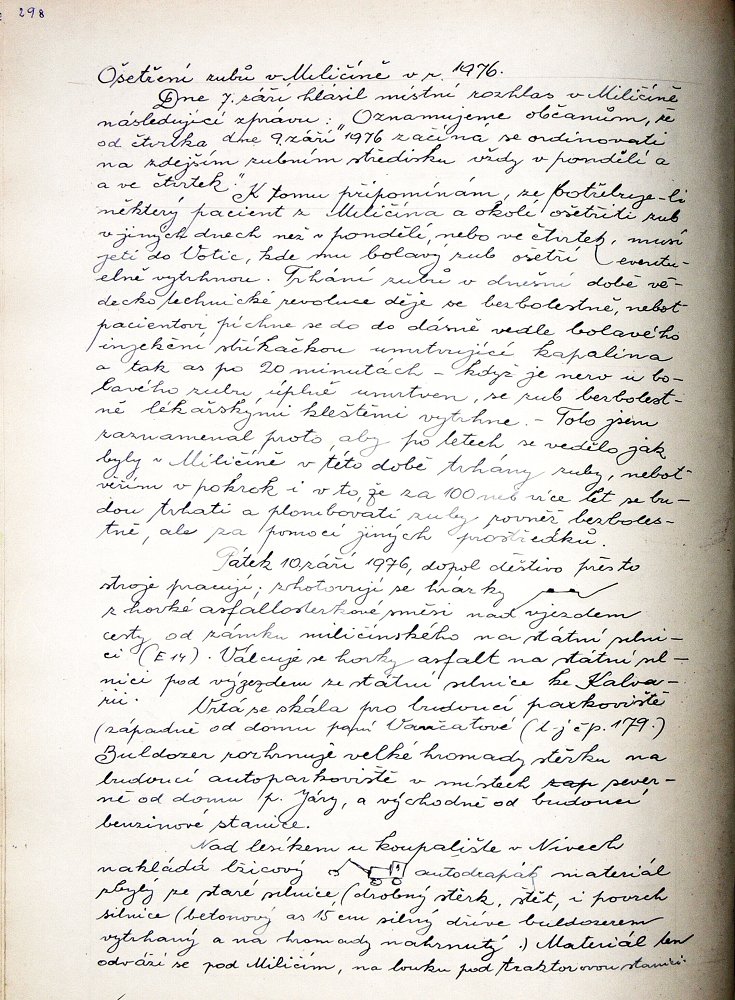 298
Ošetření zubů v Miličíně v r. 1976.
Dne 7. září hlásil místní rozhlas v Miličíně
následující zprávu: Oznamujeme občanům, že
od čtvrtka dne 9. září "1976 začíná se ordinovati
na zdejším zubním středisku vždy v pondělí a
a ve čtvrtek." K tomu připomínám, že potřebuje-li
některý pacient z Miličína a okolí ošetřiti zub
v jiných dnech než v pondělí, nebo ve čtvrtek, musí
jeti do Votic, kde mu bolavý zub ošetří (eventu-
elně vytrhnou. Trhání zubů v dnešní době vě-
decko technické revoluce děje se bezbolestně, neboť
pacientovi píchne se do do dásně vedle bolavého
injekční stříkačkou umrtvující kapalina
a tak as po 20 minutách - když je nerv u bo-
lavého zubu úplně umrtven, se zub bezbolest-
ně lékařskými kleštěmi vytrhne. - Toto jsem
zaznamenal proto, aby po letech se vědělo jak
byly v Miličíně v této době trhány zuby, neboť
věřím v pokrok i v to, že za 100 neb více let se bu-
dou trhati a plombovati zuby rovněž bezboles-
tně, ale za pomoci jiných prostředků.
Pátek 10. září 1976, dopol deštivo přesto
stroje pracují; zhotovují se hrázky
z horké asfaltosterkové směsi nad vjezdem
cesty od zámku miličínského na státní silni-
ci (E 14). Válcuje se horký asfalt na státní sil-
nici pod výjezdem ze státní silnice ke Kalva-
rii. Vrtá se skála pro budoucí parkoviště
(západně od domu paní Vančatové (t.j čp. 179.)
Buldozer rozhrnuje velké hromady štěrku na
budoucí autoparkoviště v místech zap sever-
ně od domu p. Járy, a východně od budoucí
benzinové stanice.
Nad lesíkem u koupaliště v Nivech
nakládá lžicový autodrapák materiál
zbylý ze staré silnice (drobný štěrk, štět, i povrch
silnice (betonový as 15 cm silný dříve buldozerem
vytrhaný a na hromady nahrnutý.) Materiál ten
odváží se pod Miličín, na louku pod traktorovou stanici.